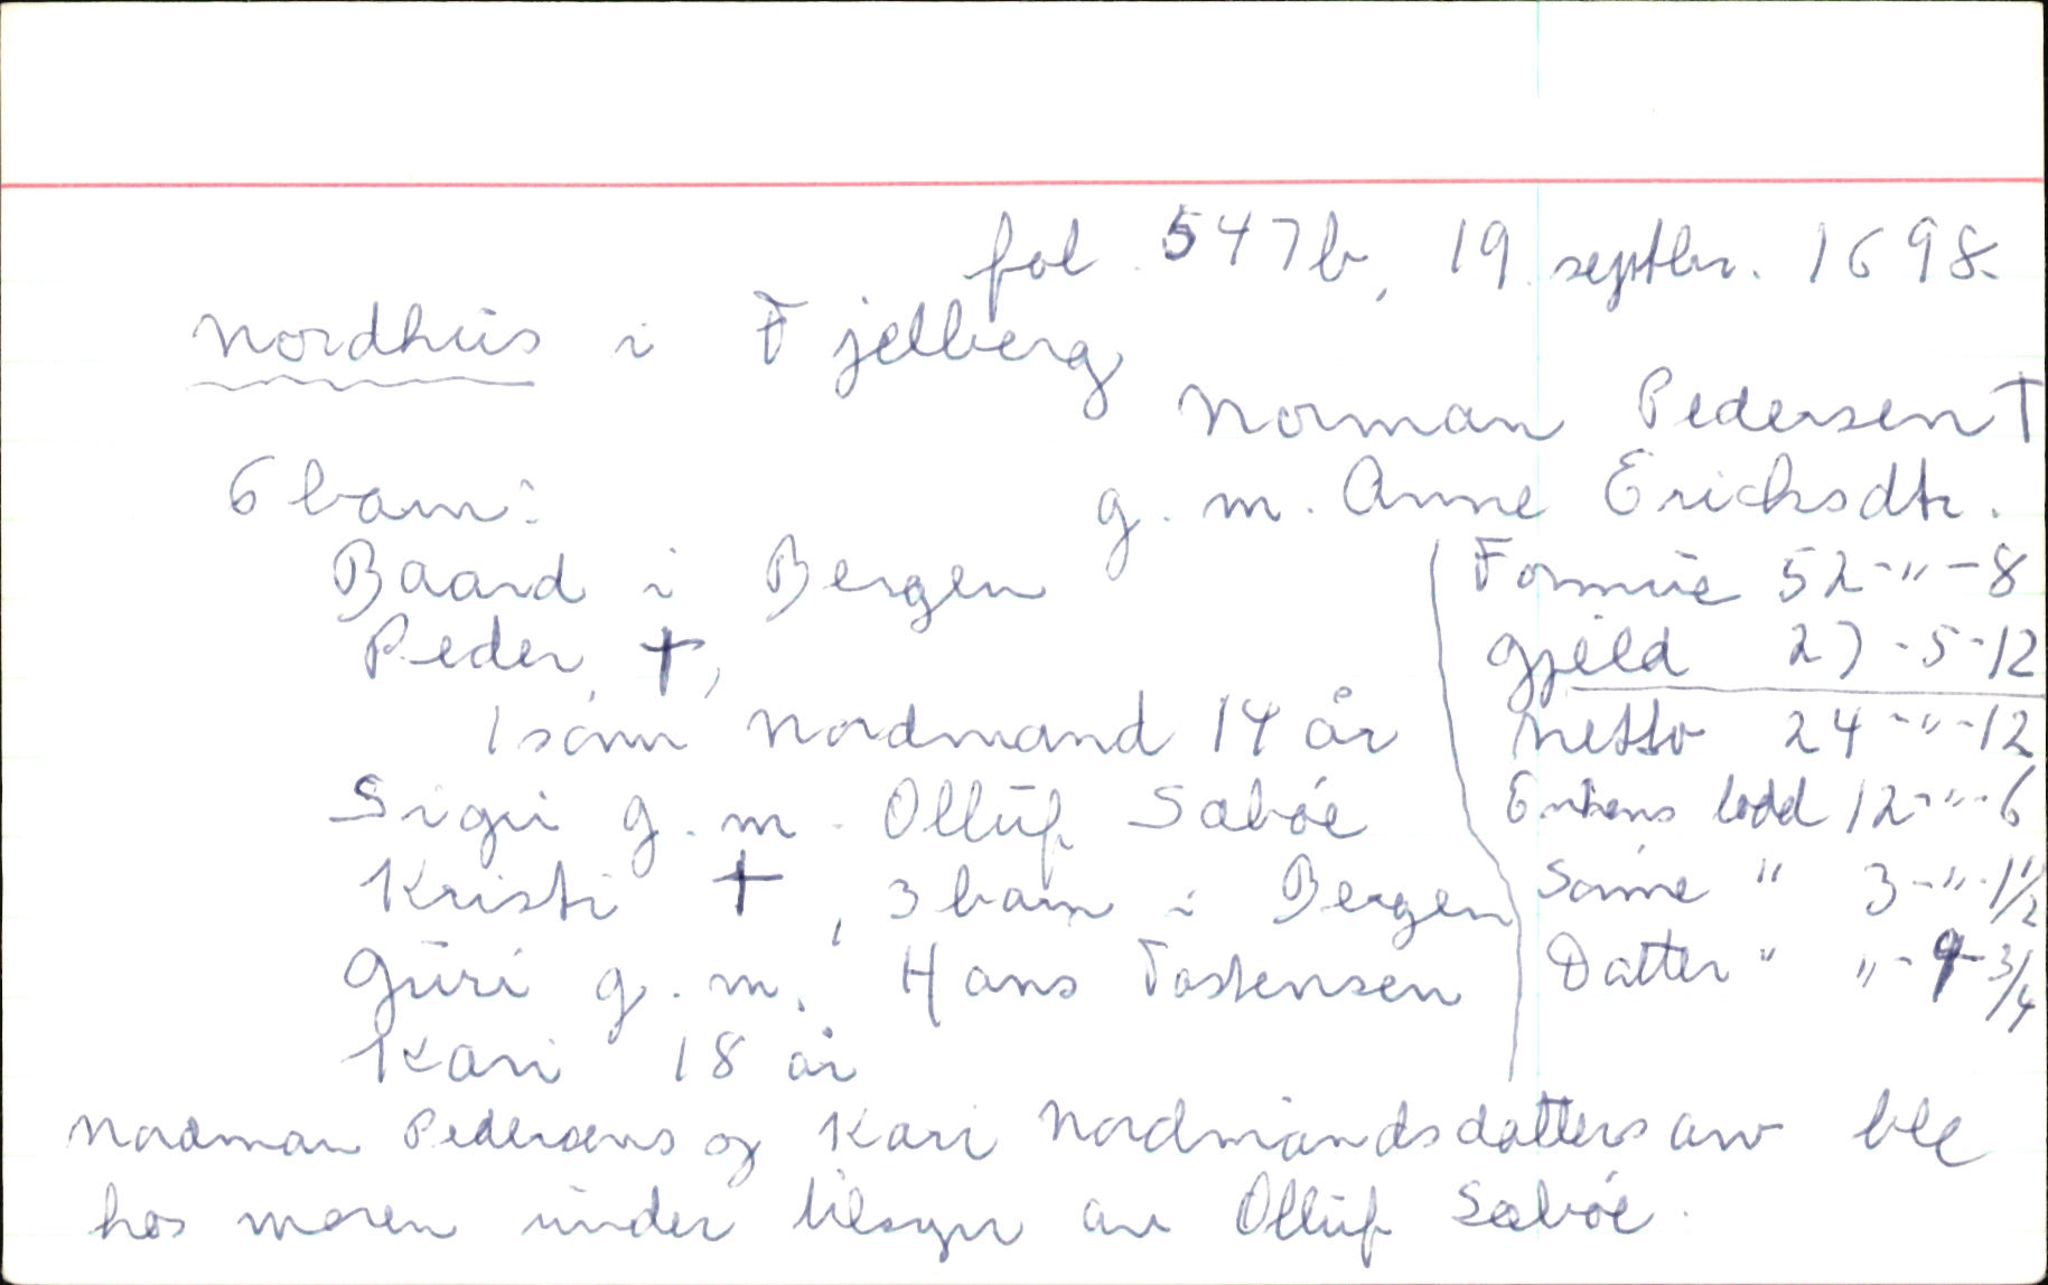 fol. 547b, 19. septbr. 1698.
Nordhus i Fjelberg
Norman Pedersen †
6 barn:
g. m. Anne Ericksdtr.
Baard i Bergen
Peder †,
1 sønn Nordmand 14 år
Sigri g. m. Olluf Sæbøe
Kristi †, 3 barn i Bergen
Guri g. m. Hans Tostensen
Kari 18 år
Formue 52-"-8
Gjeld 27-5-12
Netto 24-"-12
Enkens lodd 12-"-6
Sønne " 3-"-1½
Datter " "-9-3/4
Nordman Pedersens og Kari Nordmandsdatters arv ble
hos moren under tilsyn av Olluf Sæbøe.